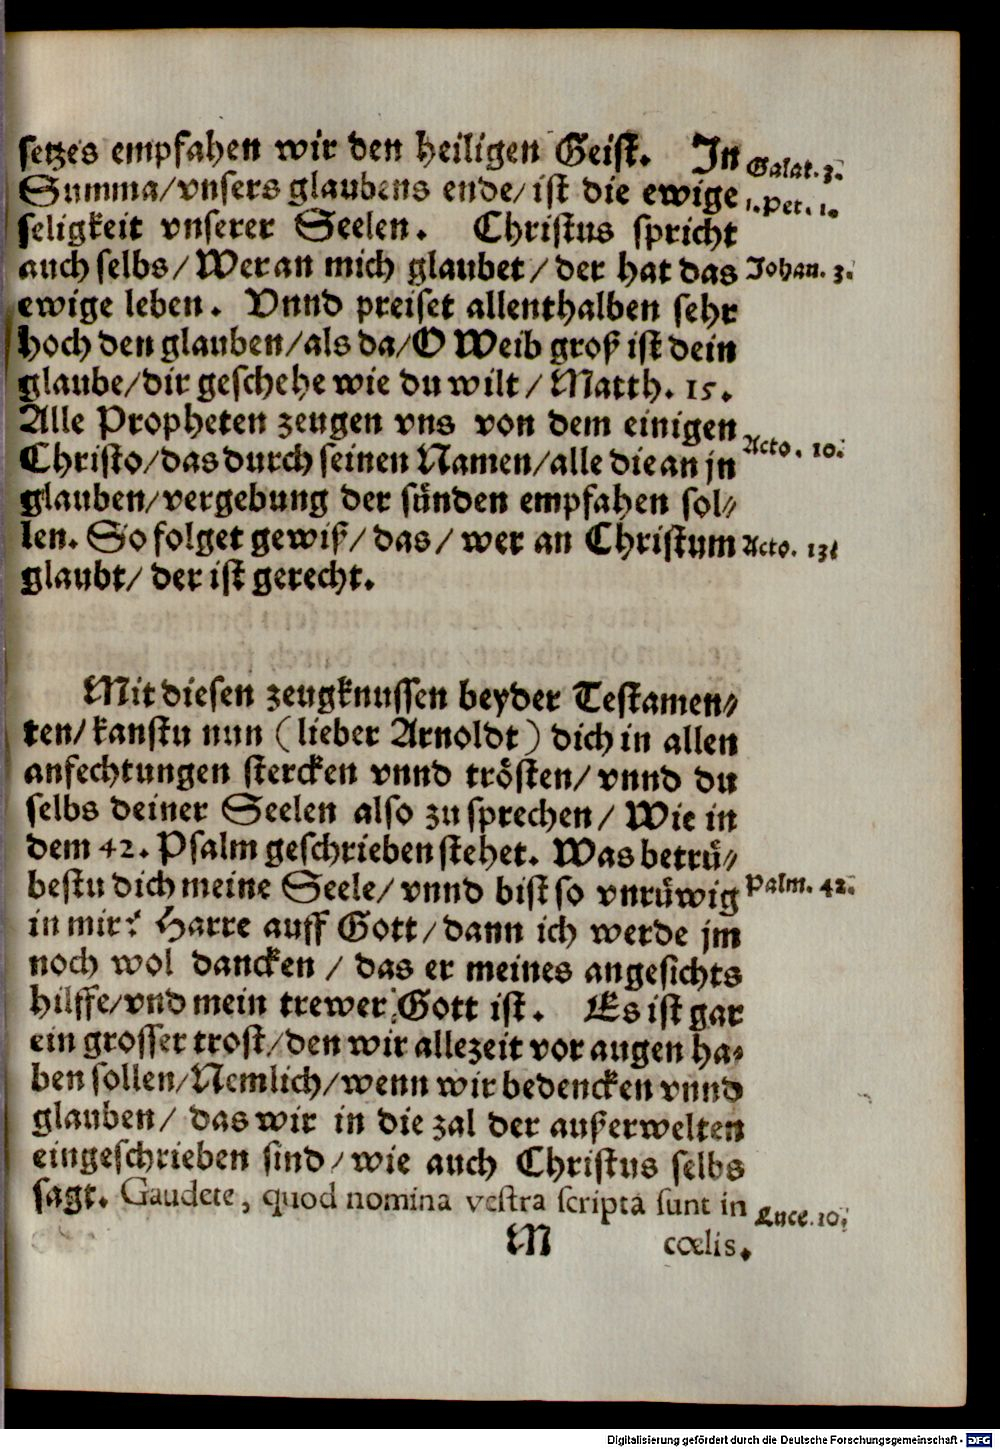 setzes empfahen wir den heiligen Geist. In
Galat. 3.
Summa/vnsers glaubens ende/ist die ewige
1. Pet. 1.
seligkeit vnserer Seelen. Christus spricht
auch selbs/Wer an mich glaubet/der hat das
Johan. 3.
ewige leben. Vnnd preiset allenthalben sehr
hoch den glauben/als da/O Weib groß ist dein
glaube/dir geschehe wie du wilt/Matth. 15.
Alle Propheten zeugen vns von dem einigen
Acto. 10.
Christo/das durch seinen Namen/alle die an jn
glauben/vergebung der sünden empfahen sol⸗
len. So folget gewiß/das/wer an Christum
Acto. 13.
glaubt/der ist gerecht.
Mit diesen zeugknussen beyder Testamen⸗
ten/kanstu nun (lieber Arnoldt) dich in allen
anfechtungen stercken vnnd trösten/vnnd du
selbs deiner Seelen also zu sprechen/Wie in
dem 42. Psalm geschrieben stehet. Was betrü⸗
bestu dich meine Seele/vnnd bist so vnrüwig
Psalm. 42.
in mir? Harre auff Gott/dann ich werde jm
noch wol dancken/das er meines angesichts
hilffe/vnd mein trewer Gott ist. Es ist gar
ein grosser trost/den wir allezeit vor augen ha⸗
ben sollen/Nemlich/wenn wir bedencken vnnd
glauben/das wir in die zal der außerwelten
eingeschrieben sind/wie auch Christus selbs
sagt. Gaudete, quod nomina vestra scripta sunt in
Luce. 10.
M cœlis.
Digitalisierung gefördert durch die Deutsche Forschungsgemeinschaft - DFG